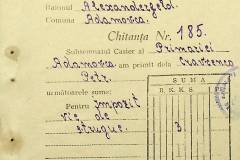 Raionul Alexanderfeld.
Comuna Adamovca.
Chitanța Nr. 185.
Subsemnatul Casier al Primăriei
Adamovca am primit dela Cravcenco
Petr.
următoarele sume:
SUMA
Pentru Impozit
vie, de
struguc.
3